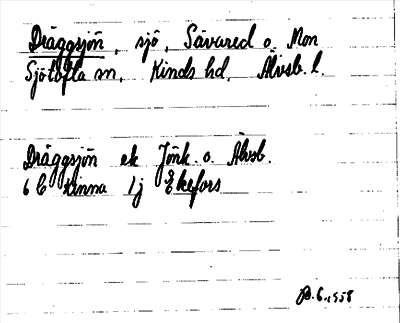 Dräggsjön, sjö, Sävared o. Mon
Sjötofta sn, Kinds hd, Älvsb. l.
Dräggsjön ek Jönk. o. Älvsb.
6 C Kinna 1j Ekefors
1958